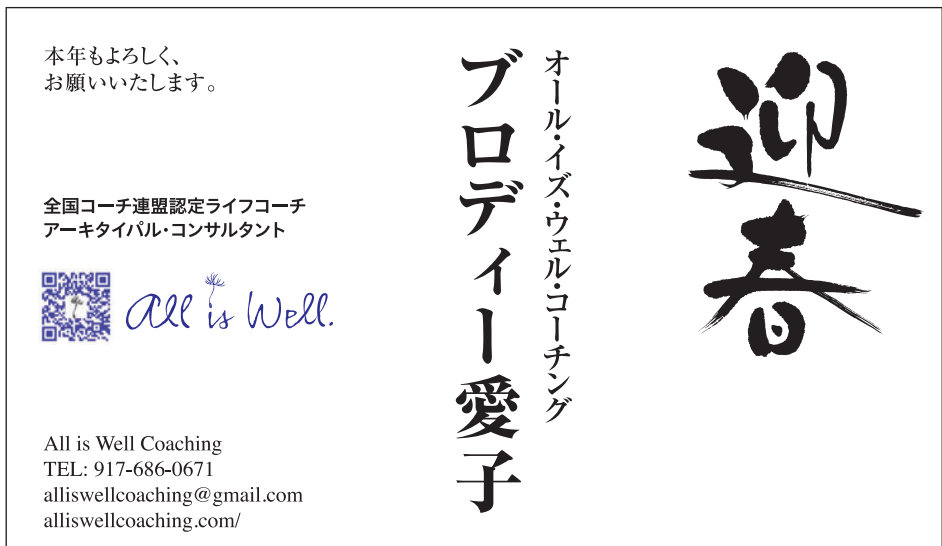 迎春
オール・イズ・ウェル・コーチング
ブロディー愛子
本年もよろしく、
お願いいたします。
全国コーチ連盟認定ライフコーチ
アーキタイパル・コンサルタント
All is Well.
All is Well Coaching
TEL: 917-686-0671
alliswellcoaching@gmail.com
alliswellcoaching.com/